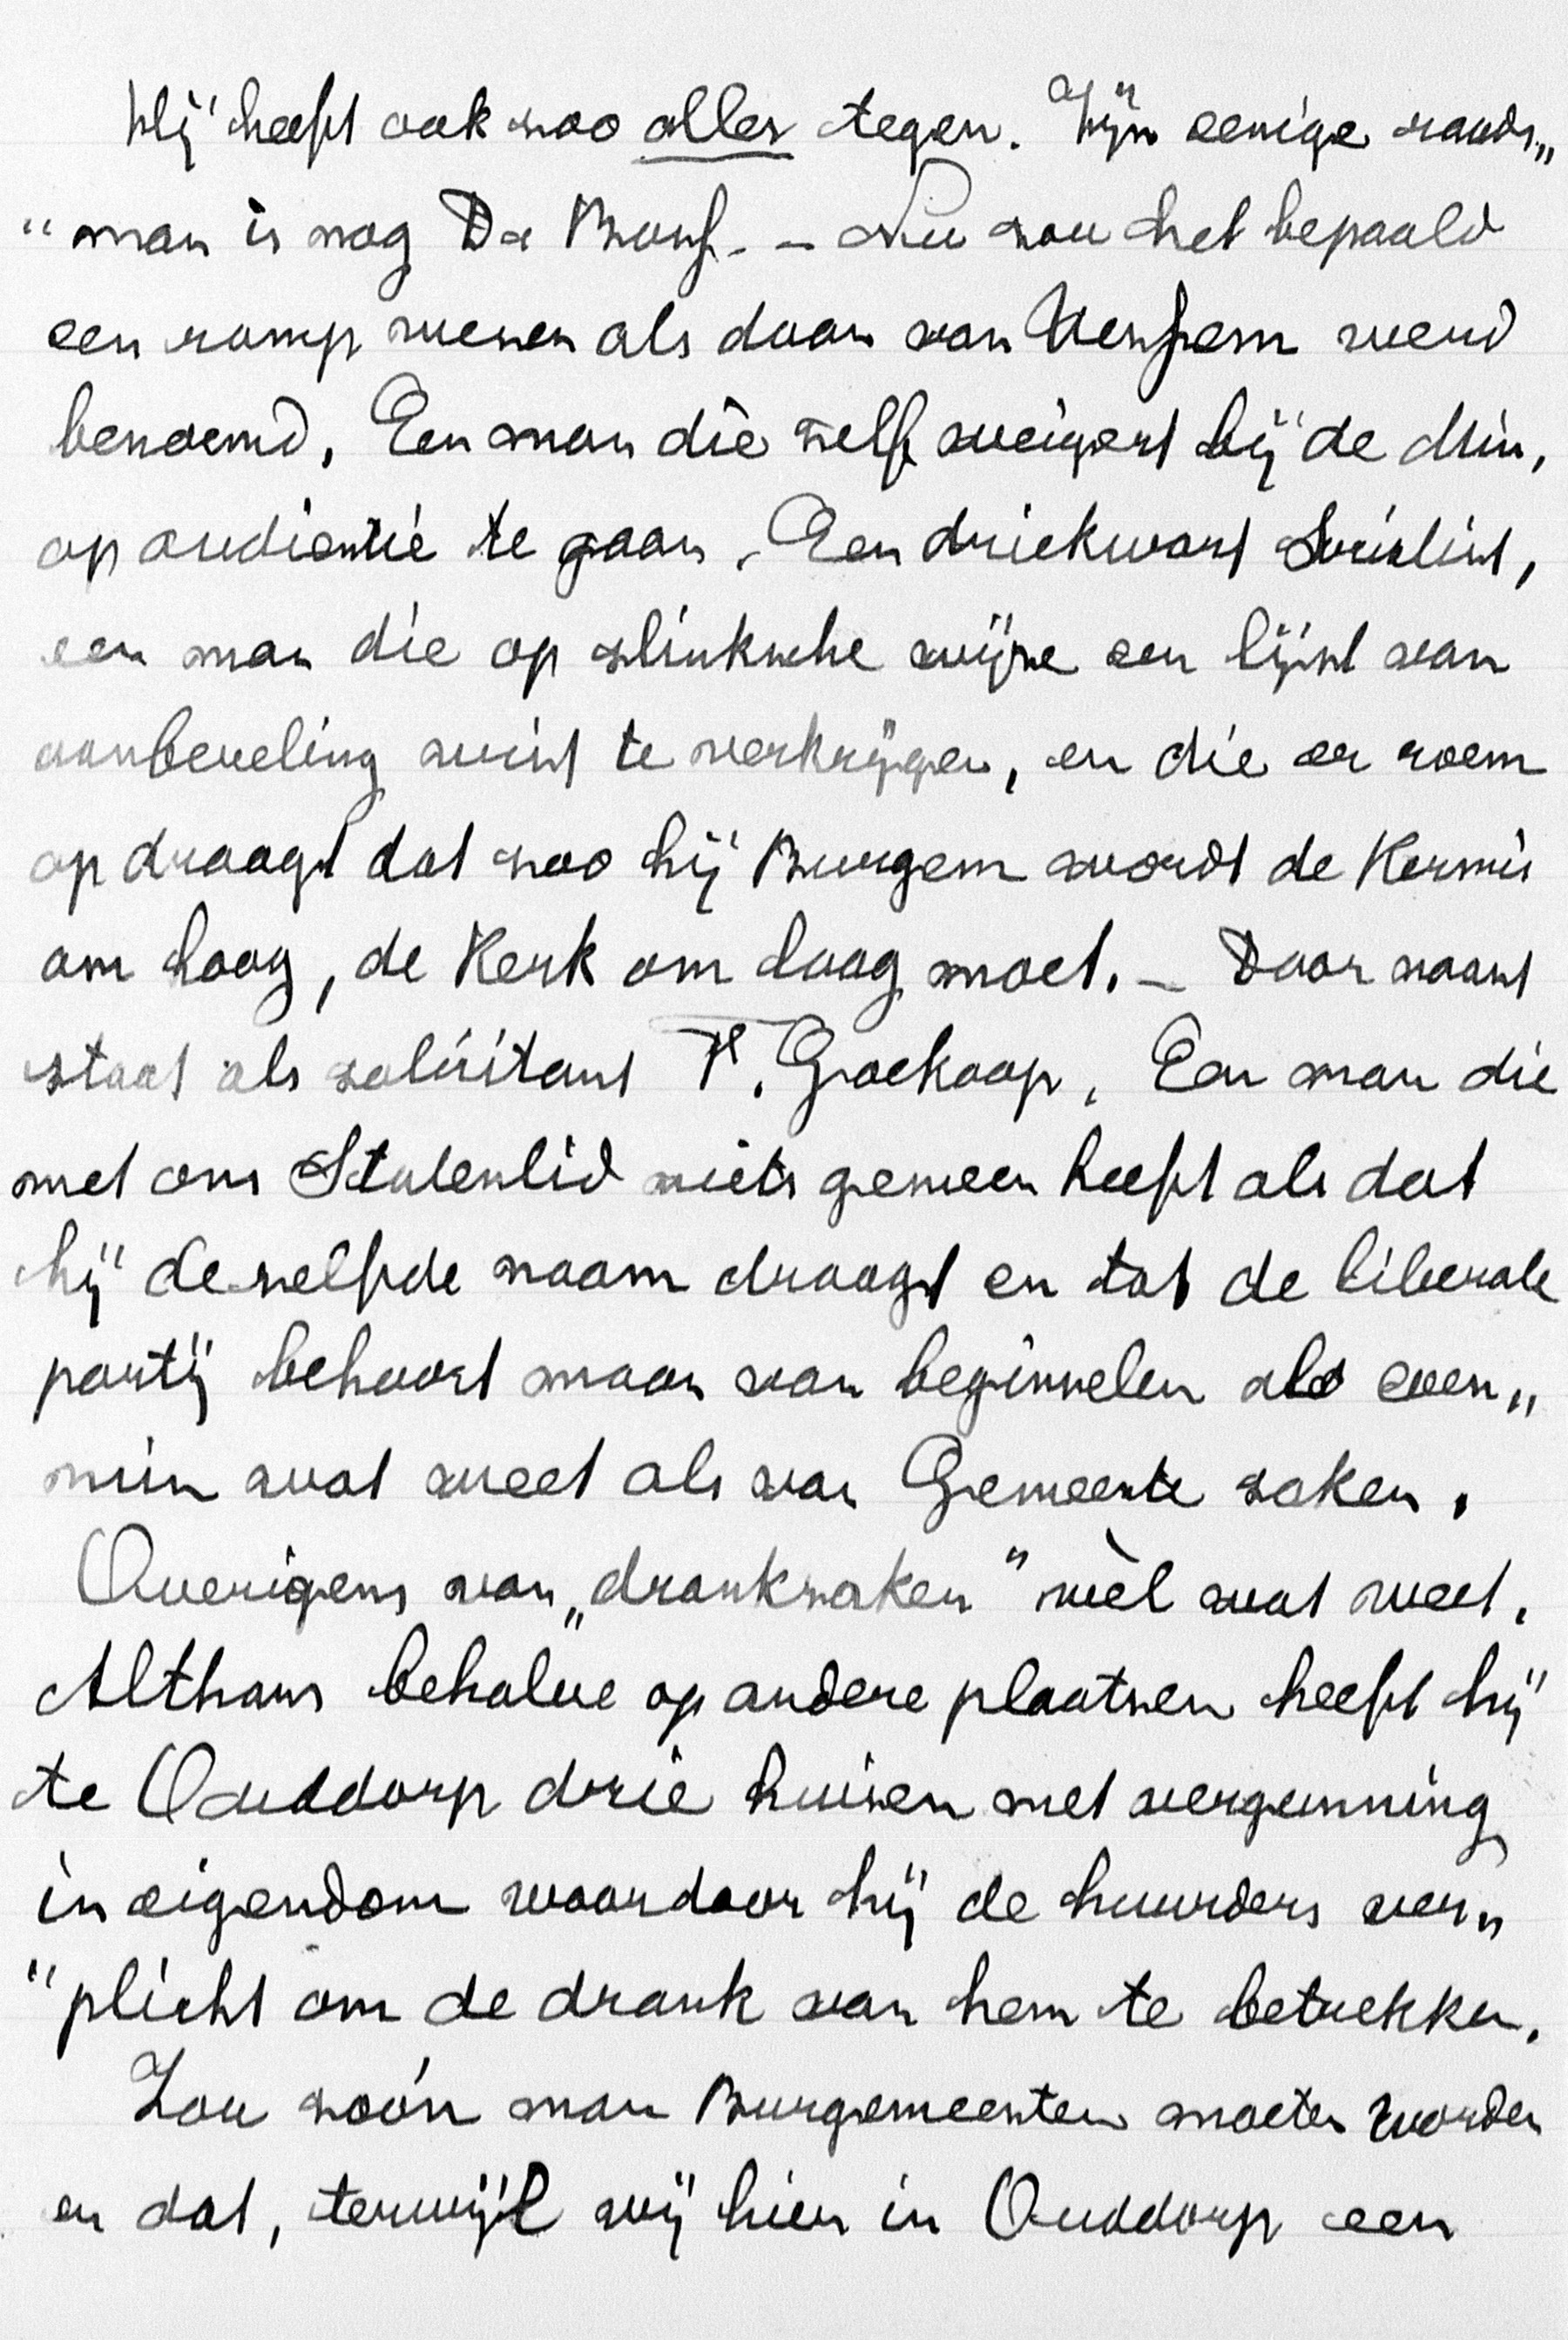 Hij heeft ook zoo alles tegen. Zijn eenige raads„
“man is nog Dr Bouf. – Nu zou het bepaald
een ramp wezen als daar van Werfem werd
benoemd. Een man die zelf weigert bij de Min,
op audientie te gaan. Een driekwart Socialist,
een man die op slinksche wijze een lijst van
aanbeveling wist te verkrijgen, en die er roem
op draagt dat zoo hij Burgem wordt de Kermis
om hoog, de Kerk om laag moet. – Daar naast
staat als solicitant T. Goekoop. Een man die
met ons Statenlid niets gemeen heeft als dat
hij dezelfde naam draagt en tot de liberale
partij behoort maar van beginselen als even„
min wat weet als van Gemeente zaken.
Overigens van „drankzaken“ wèl wat weet.
Althans behalve op andere plaatsen heeft hij
te Ouddorp drie huizen met vergunning
in eigendom waardoor hij de huurders ver„
“plicht om de drank van hem te betrekken.
Zou zoón man Burgemeester moeten worden
en dat, terwijl wij hier in Ouddorp een